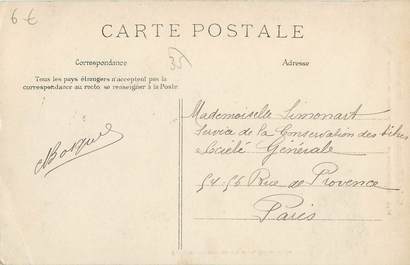 6 €
CARTE POSTALE
Correspondance
35
Adresse
Tous les pays étrangers n'acceptent pas la
correspondance au recto, se renseigner à la Poste
Mademoiselle Simonart
Service de la Conservation des titres
Société Générale
54-56 Rue de Provence
Paris